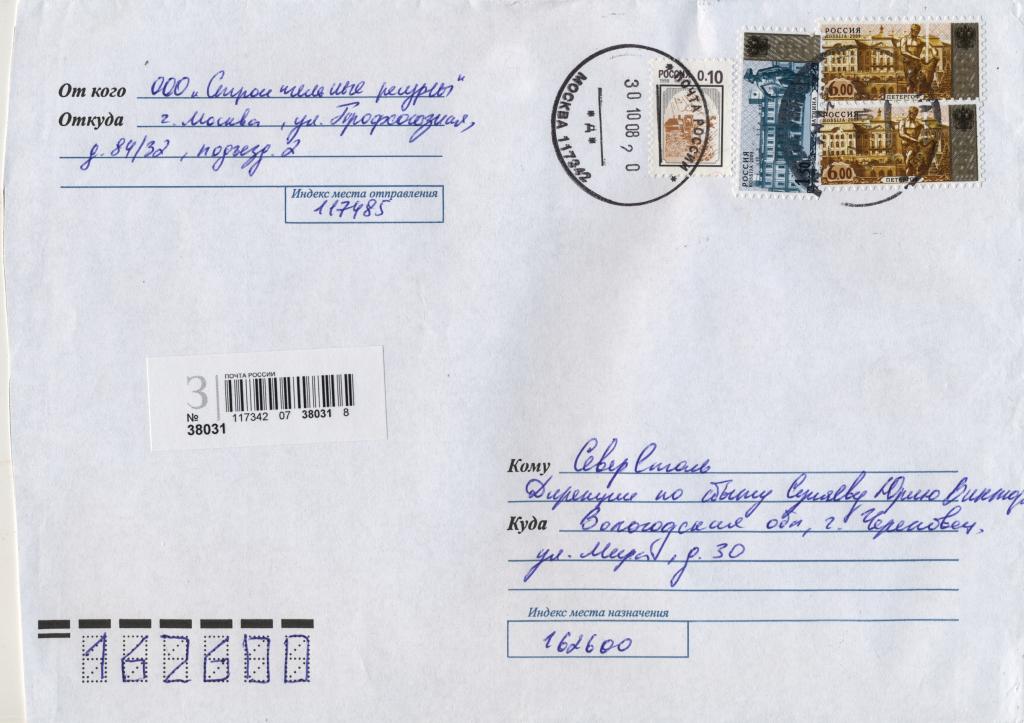 От кого ООО „Строительные ресурсы"
Откуда г. Москва, ул. Профсоюзная,
д. 84/32, подъезд. 2
Индекс места отправления
117485
МОСКВА 117342
ПОЧТА РОССИИ
30 10 08 20
* Д *
РОССИЯ 0.10
1998
РОССИЯ
ROSSIJA 2003
РОССИЯ
ROSSIJA 2003
6.00
ПЕТЕРГОФ
РОССИЯ
ROSSIJA 2003
6.00
ПЕТЕРГОФ
З ПОЧТА РОССИИ
№ 117342 07 38031 8
38031
Кому СеверСталь
Директору по сбыту Юрию Виктор
Куда Вологодская обл, г. Череповец,
ул. Мира, д. 30
Индекс места назначения
162600
162600